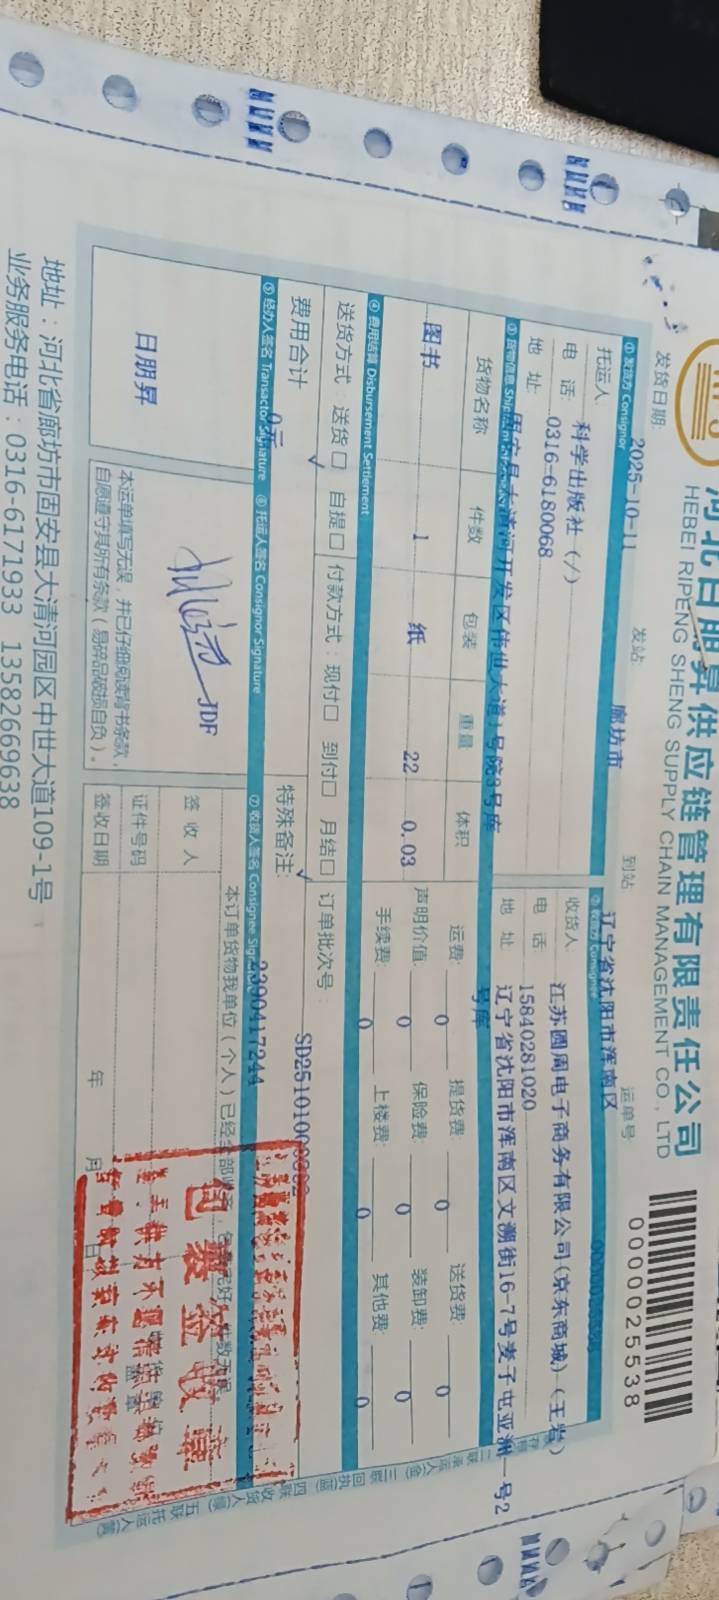 河北日朋昇供应链管理有限责任公司
HEBEI RIPENG SHENG SUPPLY CHAIN MANAGEMENT CO., LTD
0000025538
发货日期: 2025-10-11 发站: 廊坊市 到站: 辽宁省沈阳市浑南区 运单号:
① 发货方 Consignor ② 收货方 Consignee
托运人: 科学出版社（/） 收货人: 江苏圆周电子商务有限公司(京东商城)（王岩）
电 话: 0316-6180068 电 话: 15840281020
地 址: 固安县大清河开发区伟世大道1号院3号库 地 址: 辽宁省沈阳市浑南区文溯街16-7号麦子屯亚洲一号2号库
③ 货物信息
货物名称 件数 包装 重量 体积 运费: 0 提货费: 0 送货费: 0
图书 1 纸 22 0.03 声明价值: 0 保险费: 0 装卸费: 0
手续费: 0 上楼费: 0 其他费: 0
④ 费用结算 Disbursement Settlement
送货方式: 送货□ ✓ 自提□ 付款方式: 现付□ 到付□ 月结□ ✓ 订单批次号:
费用合计 0元 特殊备注:
⑤ 经办人签名 Transactor Signature ⑥ 托运人签名 Consignor Signature ⑦ 收货人签名 Consignee
2390417244
日朋昇
JDF
本运单填写无误，并已仔细阅读背书条款，
自愿遵守其所有条款（易碎品破损自负）。
本订单货物我单位（个人）已经全部
签 收 人
证件号码
签收日期 年 月 日
包装签收章
地址：河北省廊坊市固安县大清河园区中世大道109-1号
业务服务电话：0316-6171933 13582669638